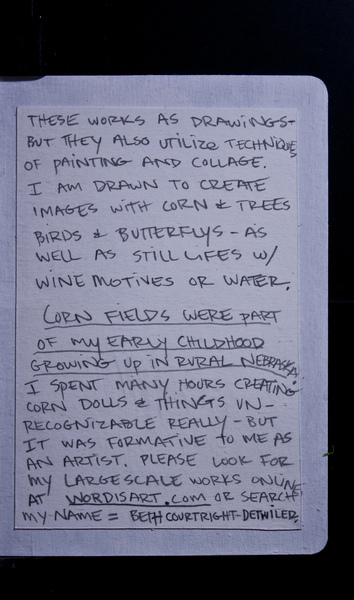 THESE WORKS AS DRAWINGS-
BUT THEY ALSO UTILIZE TECHNIQUES
OF PAINTING AND COLLAGE.
I AM DRAWN TO CREATE
IMAGES WITH CORN & TREES
BIRDS & BUTTERFLYS - AS
WELL AS STILL LIFES W/
WINE MOTIVES OR WATER.
CORN FIELDS WERE PART
OF MY EARLY CHILDHOOD
GROWING UP IN RURAL NEBRASKA.
I SPENT MANY HOURS CREATING
CORN DOLLS & THINGS UN-
RECOGNIZABLE REALLY - BUT
IT WAS FORMATIVE TO ME AS
AN ARTIST. PLEASE LOOK FOR
MY LARGESCALE WORKS ONLINE
AT WORDISART.COM OR SEARCH
MY NAME = BETH COURTRIGHT-DETWILER.